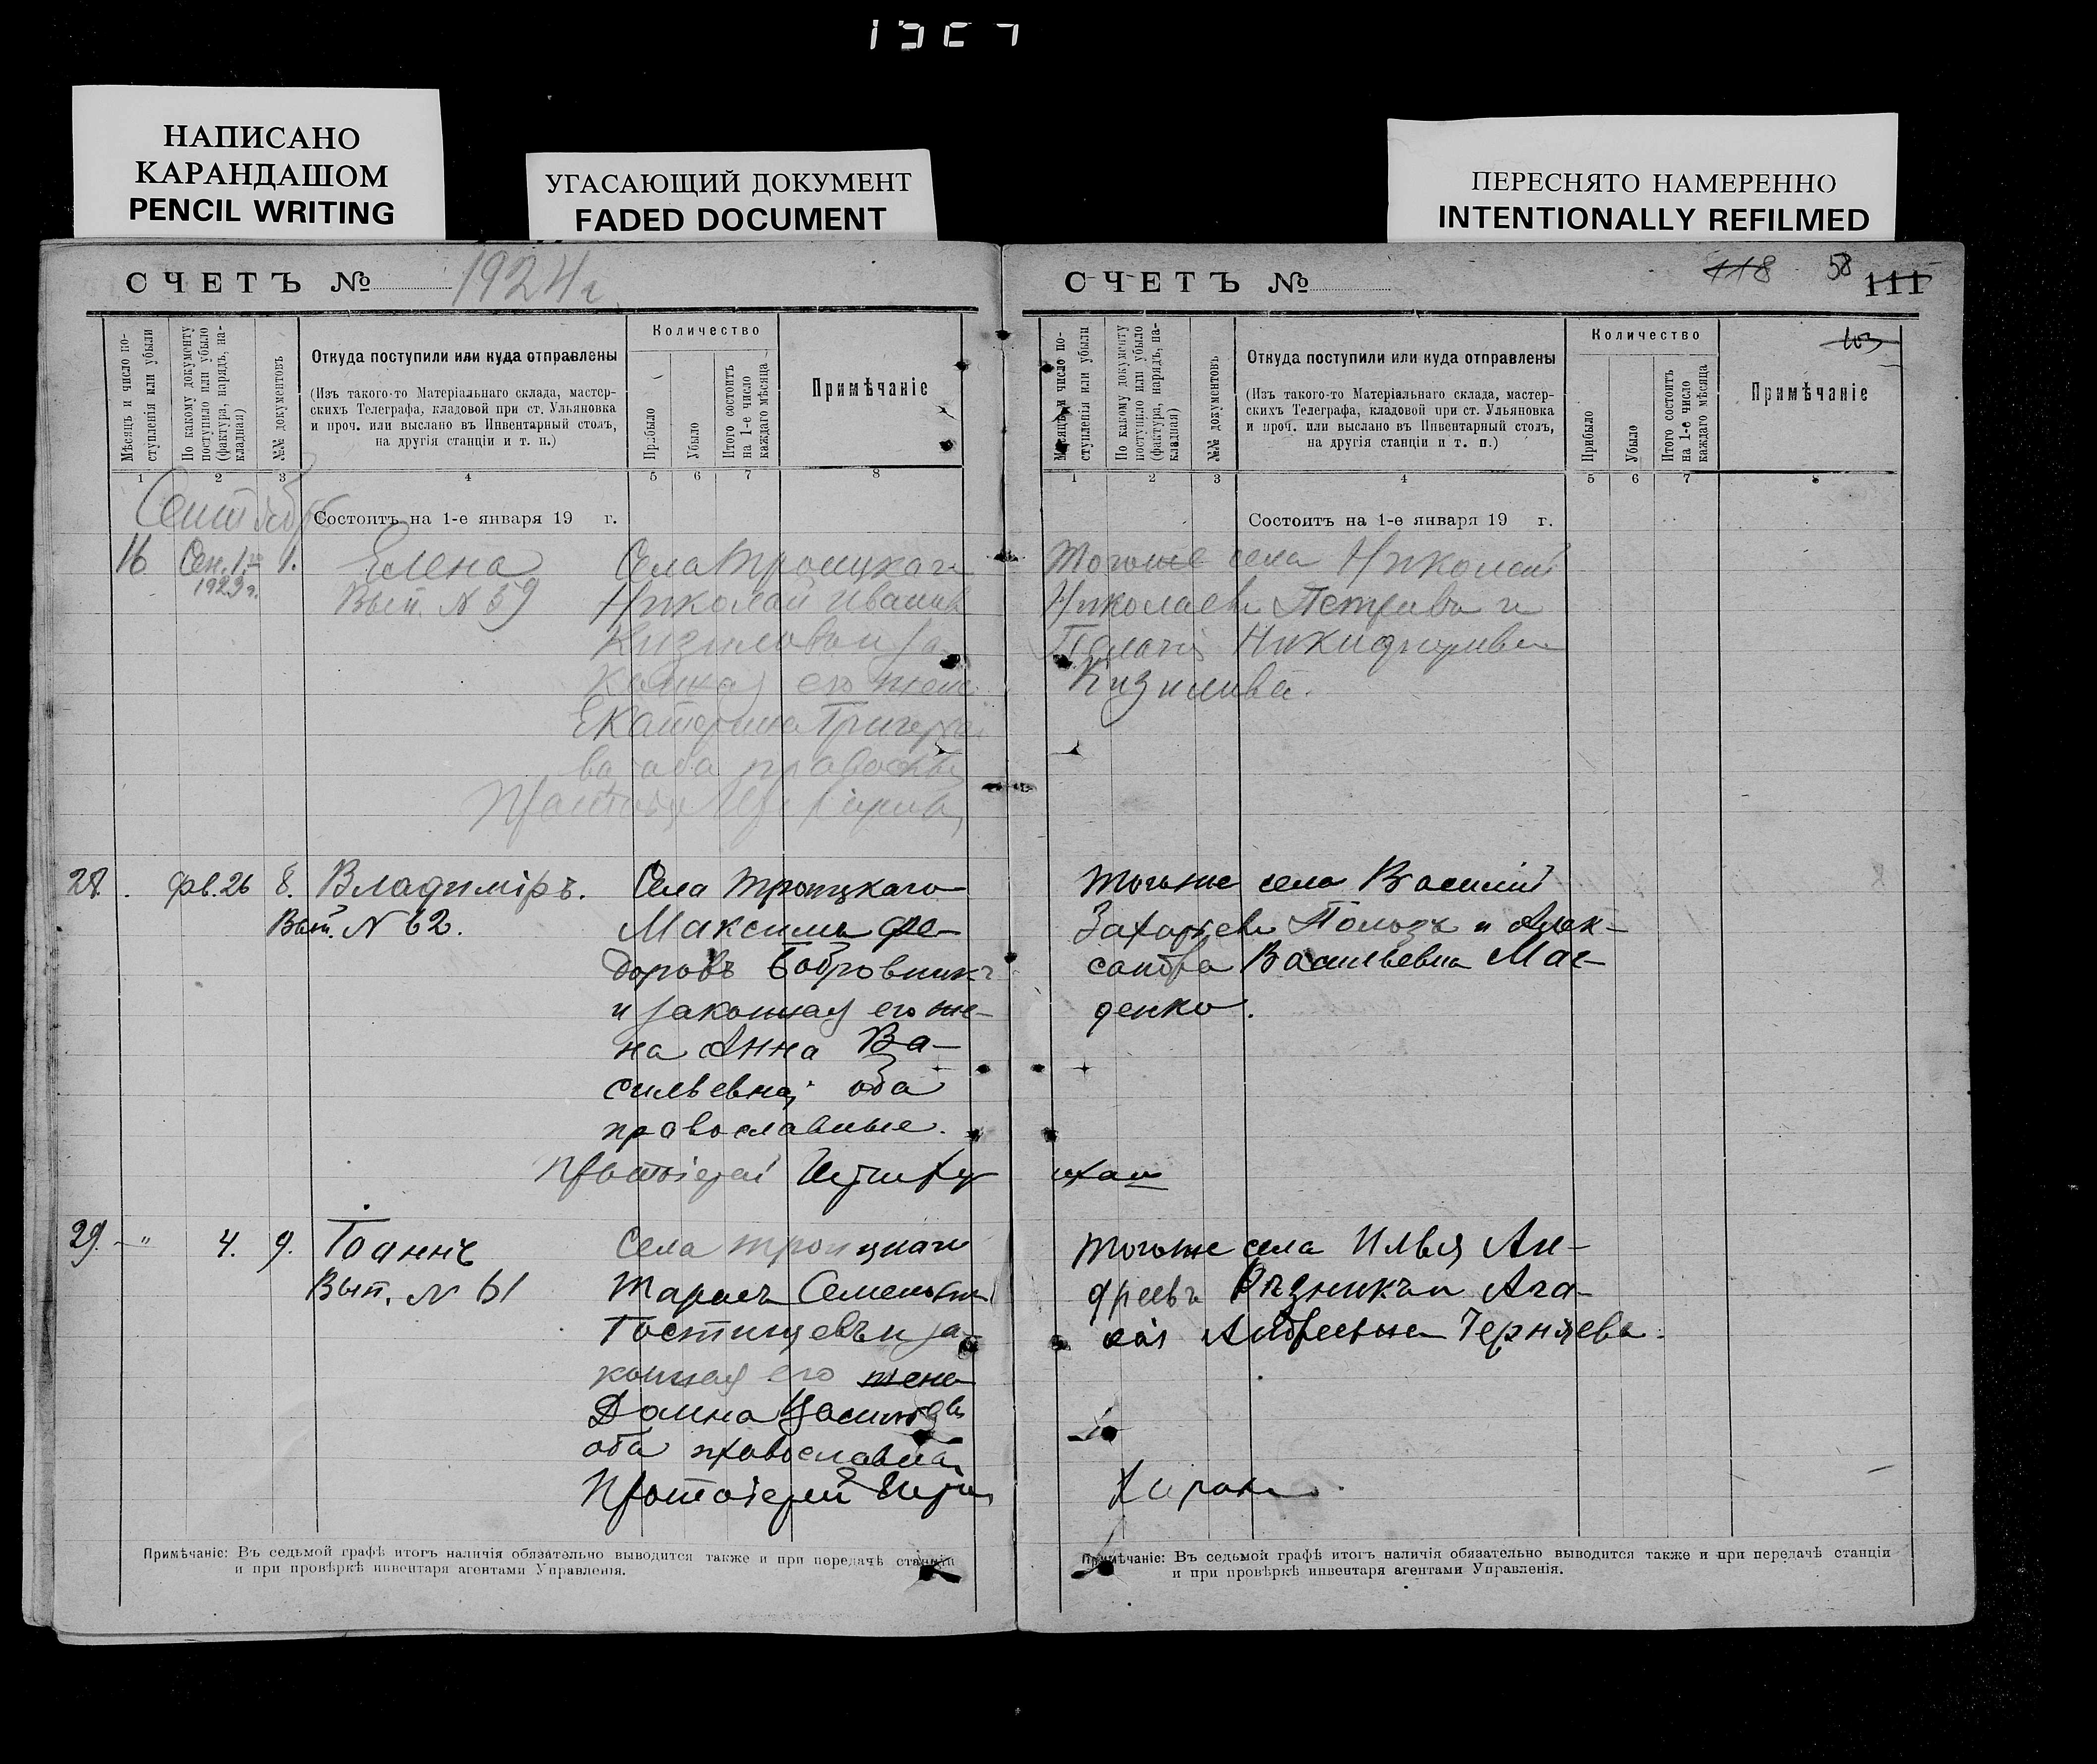 НАПИСАНО
КАРАНДАШОМ
PENCIL WRITING
УГАСАЮЩИЙ ДОКУМЕНТ
FADED DOCUMENT
ПЕРЕСНЯТО НАМЕРЕННО
INTENTIONALLY REFILMED
СЧЕТЪ №
1924 г.
Мѣсяцъ и число поступленія или убыли
По какому документу поступило или убыло (фактура, нарядъ, накладная)
№№ документовъ
Откуда поступили или куда отправлены
(Изъ такого-то Матеріальнаго склада, мастер-
скихъ Телеграфа, кладовой при ст. Ульяновка
и проч. или выслано въ Инвентарный столъ,
на другія станціи и т. п.)
Количество
Прибыло
Убыло
Итого состоитъ на 1-е число каждаго мѣсяца
Примѣчаніе
1 2 3 4 5 6 7 8
Состоитъ на 1-е января 19 г.
16 Сен. 1. 1. Елена Села Троицкаго
1923 г. Вып. N 59 Николай Иванов
его жена
Екатерина
28. фв. 26 8. Владиміръ. Села Троицкаго
Вып. N 62. Максимъ Фе-
доровъ Бобровник
и законная его же-
на Анна Ва-
сильевна, оба
православные.
Протоіерей
29. —〃 4. 9. Іоаннъ Села Троицкаго
Вып. N 61 Тарасъ Семенов
Гостищевъ и за-
конная его жена
Домна
оба православные
Протоіерей
Примѣчаніе: Въ седьмой графѣ итогъ наличія обязательно выводится также и при передачѣ станціи
и при провѣркѣ инвентаря агентами Управленія.
СЧЕТЪ №
118 58 111
103
Мѣсяцъ и число поступленія или убыли
По какому документу поступило или убыло (фактура, нарядъ, накладная)
№№ документовъ
Откуда поступили или куда отправлены
(Изъ такого-то Матеріальнаго склада, мастер-
скихъ Телеграфа, кладовой при ст. Ульяновка
и проч. или выслано въ Инвентарный столъ,
на другія станціи и т. п.)
Количество
Прибыло
Убыло
Итого состоитъ на 1-е число каждаго мѣсяца
Примѣчаніе
1 2 3 4 5 6 7 8
Состоитъ на 1-е января 19 г.
Тогоже села Николай
Николаевъ Петрова и
Никифорова
Кизилова.
Тогоже села Василій
Захаріевъ Полозъ и Алек-
сандра Васильевна Мас-
денко.
Тогоже села Илья Ан-
дреевъ Рѣзникъ и Ага-
ѳія Андреевна Черняева.
Примѣчаніе: Въ седьмой графѣ итогъ наличія обязательно выводится также и при передачѣ станціи
и при провѣркѣ инвентаря агентами Управленія.